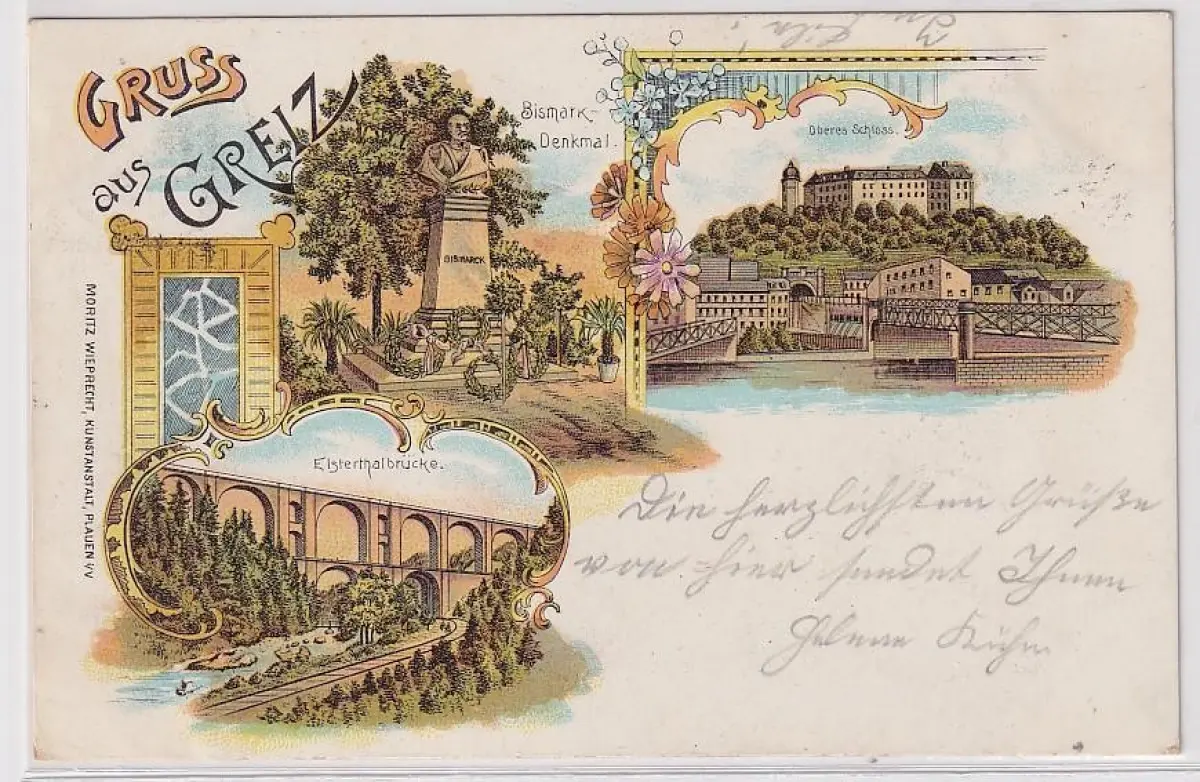 GRUSS
aus GREIZ
Bismark-
Denkmal.
Oberes Schloss.
BISMARCK
Elsterthalbrücke.
MORITZ WIEPRECHT, KUNSTANSTALT, PLAUEN i/V
Die herzlichsten Grüße
von hier sendet Ihnen
Helene Kühn